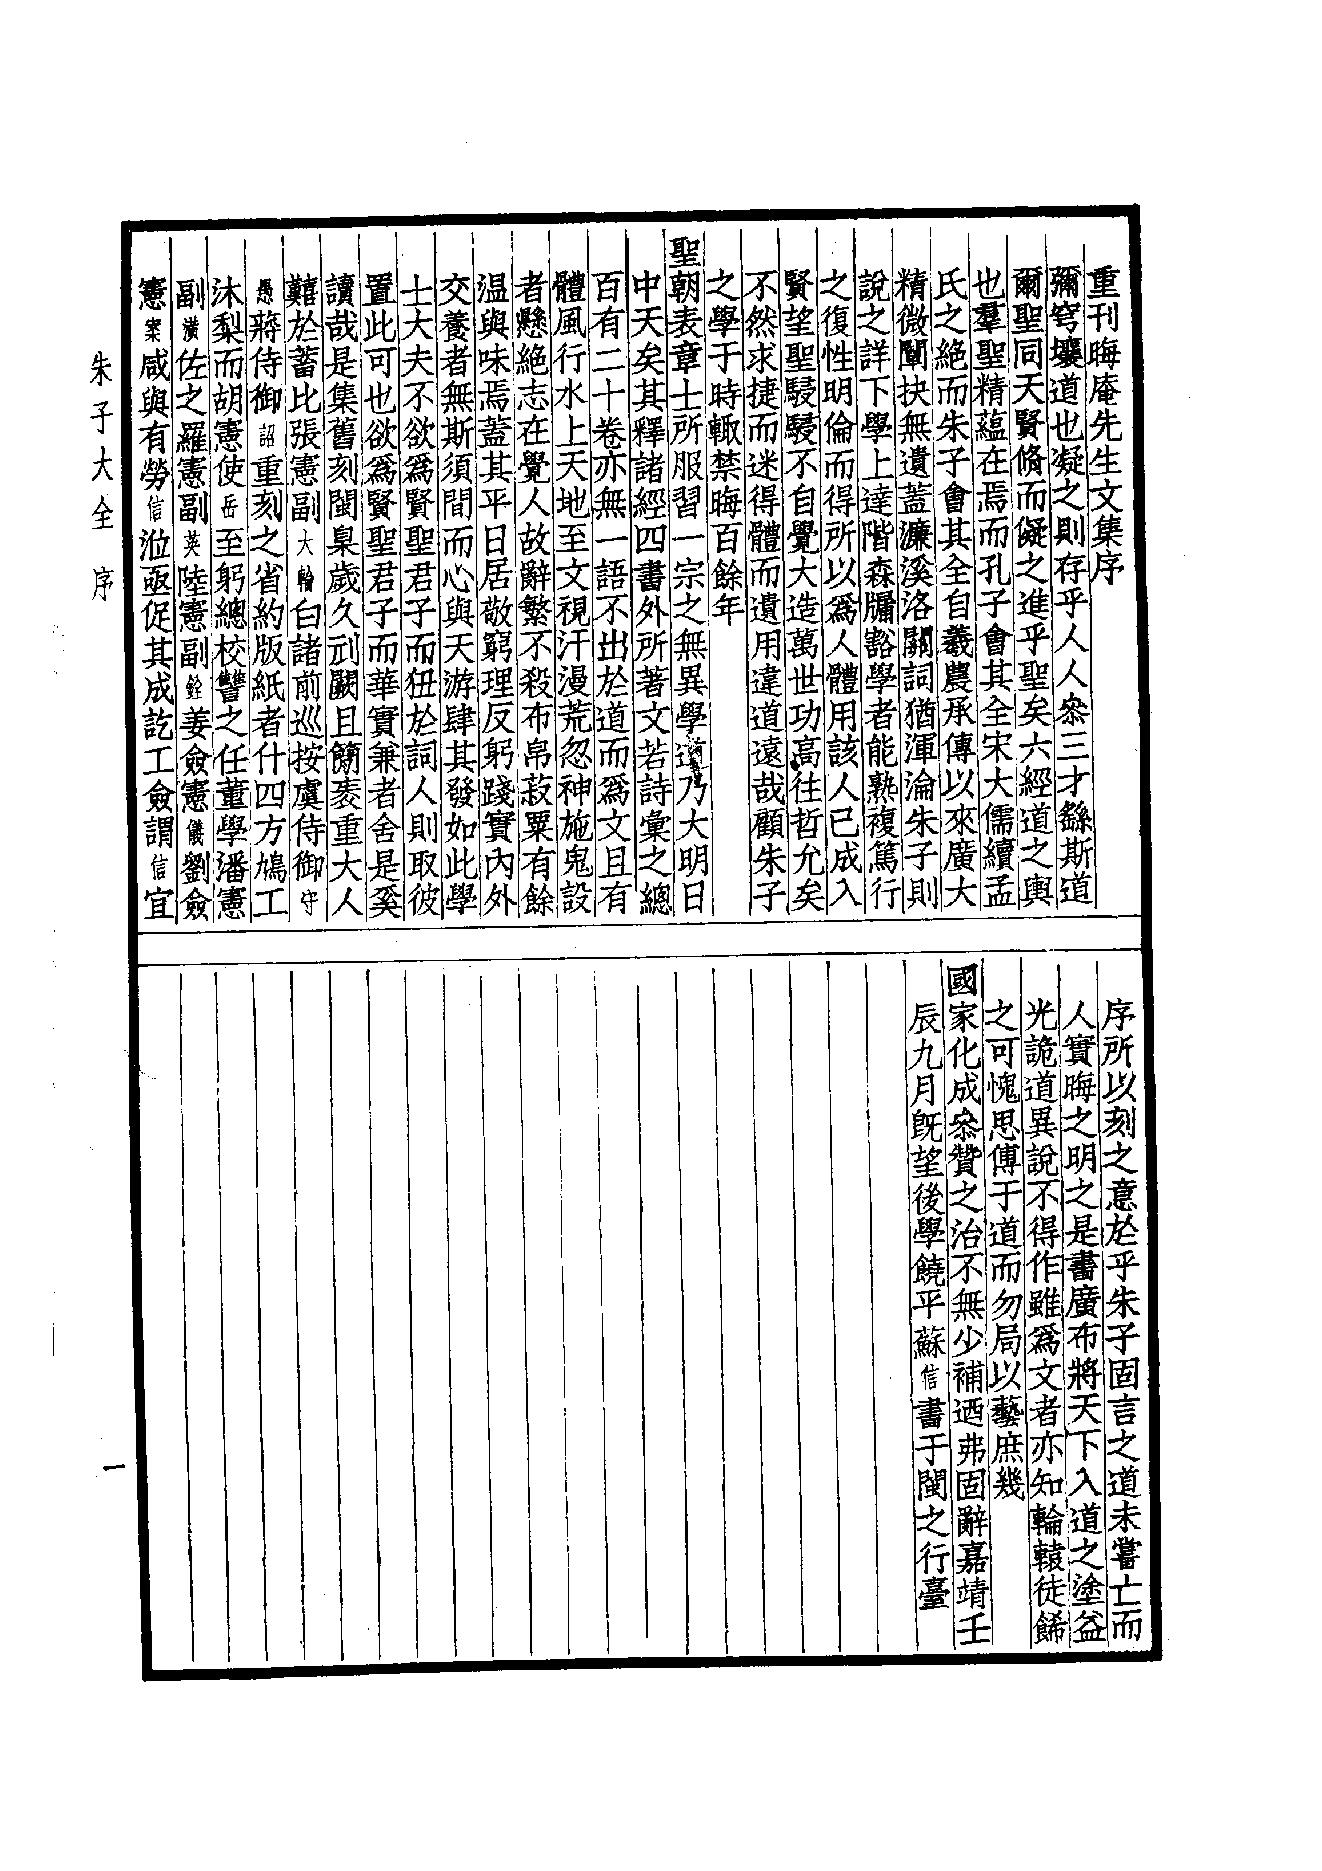 重刊晦庵先生文集序
彌穹壤道也凝之則存乎人人叅三才繇斯道
爾聖同天賢脩而儗之進乎聖矣六經道之輿
也羣聖精蘊在焉而孔子會其全宋大儒續孟
氏之絶而朱子會其全自羲農承傳以來廣大
精微闡抉無遺蓋濂溪洛關詞猶渾淪朱子則
說之詳下學上達階森牖豁學者能熟複篤行
之復性明倫而得所以爲人體用該人已成入
賢望聖駸駸不自覺大造萬世功高往哲允矣
不然求捷而迷得體而遺用違道遠哉顧朱子
之學于時輙禁晦百餘年
聖朝表章士所服習一宗之無異學道乃大明日
中天矣其釋諸經四書外所著文若詩彙之總
百有二十卷亦無一語不出於道而爲文且有
體風行水上天地至文視汗漫荒忽神施鬼設
者懸絶志在覺人故辭繁不殺布帛菽粟有餘
温與味焉蓋其平日居敬窮理反躬踐實內外
交養者無斯須間而心與天游肆其發如此學
士大夫不欲爲賢聖君子而狃於詞人則取彼
置此可也欲爲賢聖君子而華實兼者舍是奚
讀哉是集舊刻閩臬歲久刓闕且簡袠重大人
囏於蓄比張憲副大輪白諸前巡按虞侍御守
愚蔣侍御詔重刻之省約版紙者什四方鳩工
沐梨而胡憲使岳至躬總校讐之任董學潘憲
副潢佐之羅憲副英陸憲副銓姜僉憲儀劉僉
憲案咸與有勞信涖亟促其成訖工僉謂信宜
序所以刻之意於乎朱子固言之道未嘗亡而
人實晦之明之是書廣布將天下入道之塗益
光詭道異說不得作雖爲文者亦知輪轅徒餙
之可愧思傅于道而勿局以藝庶幾
國家化成叅贊之治不無少補迺弗固辭嘉靖壬
辰九月旣望後學饒平蘇信書于閩之行臺
朱子大全 序
一